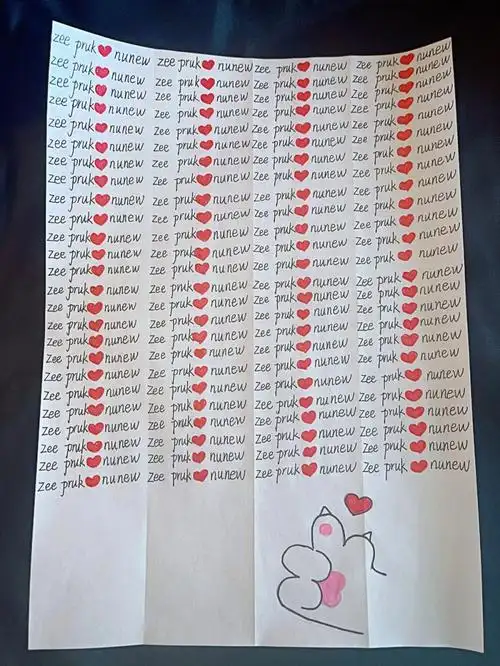 zee pruk❤nunew zee pruk❤nunew zee pruk❤nunew zee pruk❤nunew
zee pruk❤nunew zee pruk❤nunew zee pruk❤nunew zee pruk❤nunew
zee pruk❤nunew zee pruk❤nunew zee pruk❤nunew zee pruk❤nunew
zee pruk❤nunew zee pruk❤nunew zee pruk❤nunew zee pruk❤nunew
zee pruk❤nunew zee pruk❤nunew zee pruk❤nunew zee pruk❤nunew
zee pruk❤nunew zee pruk❤nunew zee pruk❤nunew zee pruk❤nunew
zee pruk❤nunew zee pruk❤nunew zee pruk❤nunew zee pruk❤nunew
zee pruk❤nunew zee pruk❤nunew zee pruk❤nunew zee pruk❤nunew
zee pruk❤nunew zee pruk❤nunew zee pruk❤nunew zee pruk❤nunew
zee pruk❤nunew zee pruk❤nunew zee pruk❤nunew zee pruk❤nunew
zee pruk❤nunew zee pruk❤nunew zee pruk❤nunew zee pruk❤nunew
zee pruk❤nunew zee pruk❤nunew zee pruk❤nunew zee pruk❤nunew
zee pruk❤nunew zee pruk❤nunew zee pruk❤nunew zee pruk❤nunew
zee pruk❤nunew zee pruk❤nunew zee pruk❤nunew zee pruk❤nunew
zee pruk❤nunew zee pruk❤nunew zee pruk❤nunew zee pruk❤nunew
zee pruk❤nunew zee pruk❤nunew zee pruk❤nunew zee pruk❤nunew
zee pruk❤nunew zee pruk❤nunew zee pruk❤nunew zee pruk❤nunew
zee pruk❤nunew zee pruk❤nunew zee pruk❤nunew zee pruk❤nunew
zee pruk❤nunew zee pruk❤nunew zee pruk❤nunew zee pruk❤nunew
zee pruk❤nunew zee pruk❤nunew zee pruk❤nunew zee pruk❤nunew
zee pruk❤nunew zee pruk❤nunew zee pruk❤nunew zee pruk❤nunew
zee pruk❤nunew zee pruk❤nunew zee pruk❤nunew zee pruk❤nunew
zee pruk❤nunew zee pruk❤nunew zee pruk❤nunew zee pruk❤nunew
zee pruk❤nunew zee pruk❤nunew zee pruk❤nunew zee pruk❤nunew
zee pruk❤nunew zee pruk❤nunew zee pruk❤nunew zee pruk❤nunew